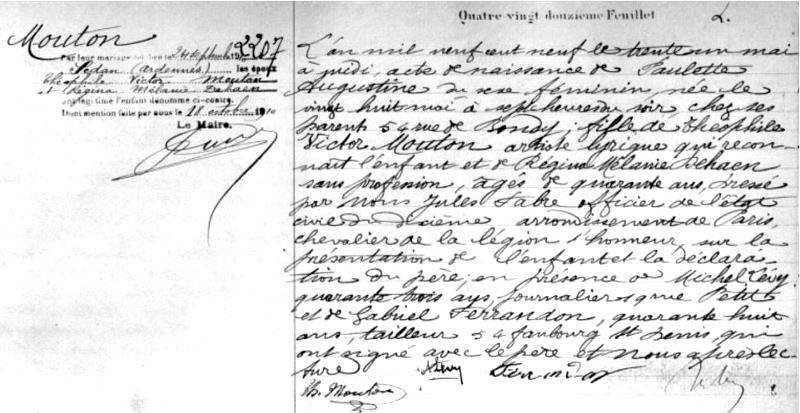 Quatre-vingt douzième Feuillet
2.
Mouton
2207
Par leur mariage célébré le 24 septembre 1910
à Sedan (Ardennes) les époux
Théophile Victor Mouton
et Régina Mélanie Dehaen
ont légitimé l'enfant dénommé ci-contre.
Dont mention faite par nous le 18 octobre 1910
Le Maire,
L'an mil neuf cent neuf le trente un mai
à midi, acte de naissance de Paulette
Augustine du sexe féminin, née le
vingt huit mai à sept heures du soir chez ses
parents 54 rue de Bondy; fille de Théophile
Victor Mouton artiste lyrique qui recon-
naît l'enfant et de Régina Mélanie Dehaen
sans profession, âgés de quarante ans, dressé
par Nous Jules Fabre officier de l'état
civil du dixième arrondissement de Paris,
chevalier de la légion d'honneur sur la
présentation de l'enfant et la déclara-
tion du père; en présence de Michel Lévy
quarante trois ans, journalier rue Petit
et de Gabriel Ferrandon, quarante huit
ans, tailleur 54 faubourg St Denis, qui
ont signé avec le père et Nous après lec-
ture
Lévy
Th. Mouton